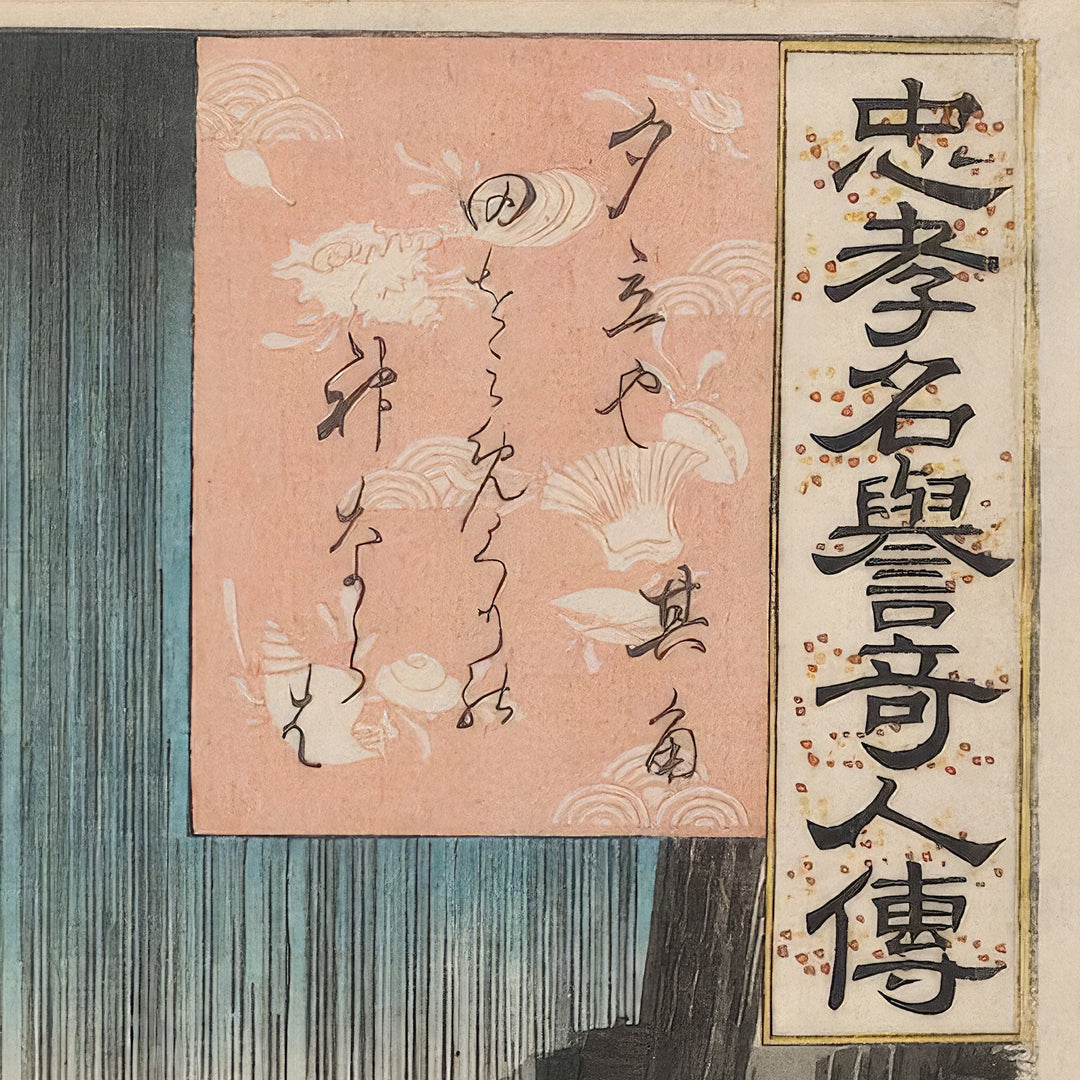 忠孝名譽奇人傳
夕立や
田をミめくりの
神ならは
其角